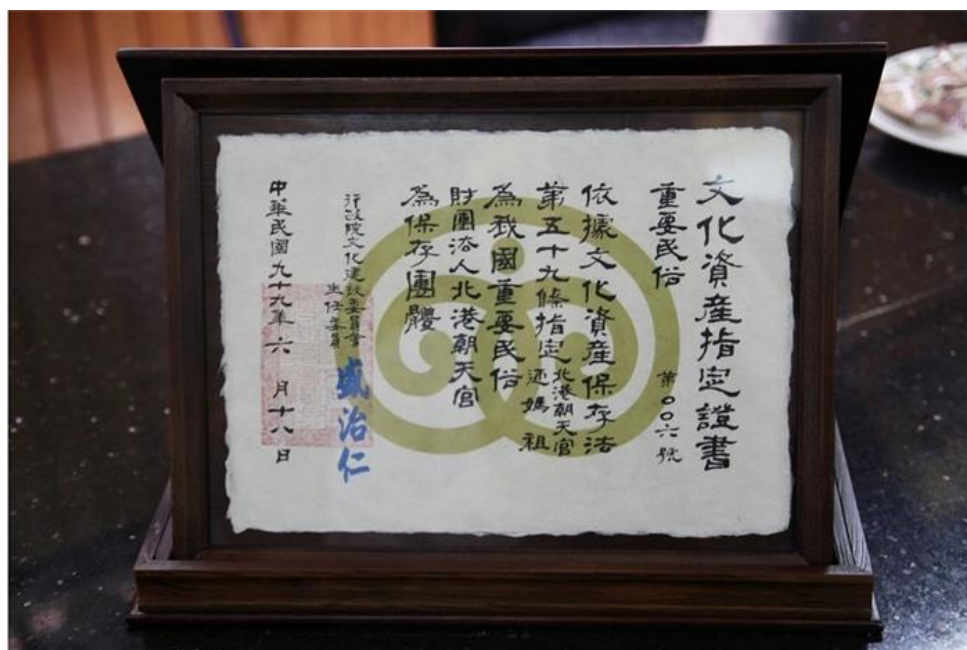 文化資產指定證書
重要民俗 第００六號
依據文化資產保存法
第五十九條指定北港朝天宮迎媽祖
為我國重要民俗
財團法人北港朝天宮
為保存團體
行政院文化建設委員會
主任委員 盛治仁
中華民國九十九年六月十八日